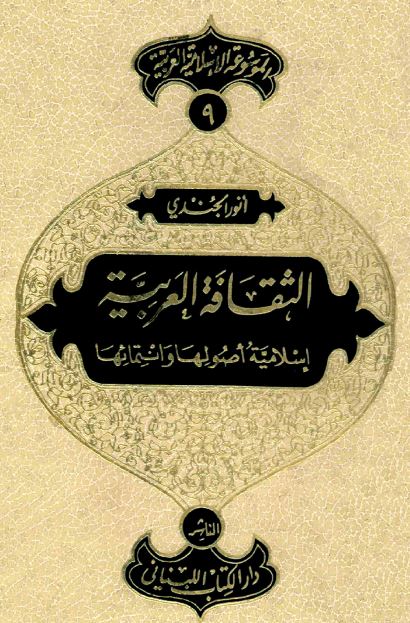 الموسوعة الإسلامية العربية
٩
أنور الجندي
الثقافة العربية
إسلامية أصولها وانتمائها
الناشر
دار الكتاب اللبناني